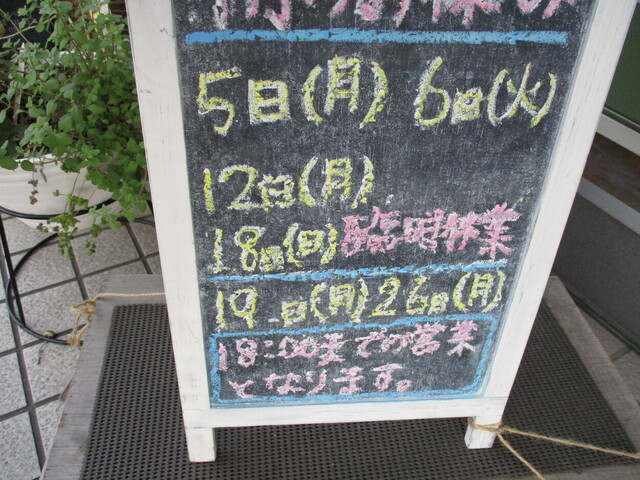 5日(月) 6日(火)
12日(月)
18日(日) 臨時休業
19日(月) 26日(月)
18:00までの営業
となります。